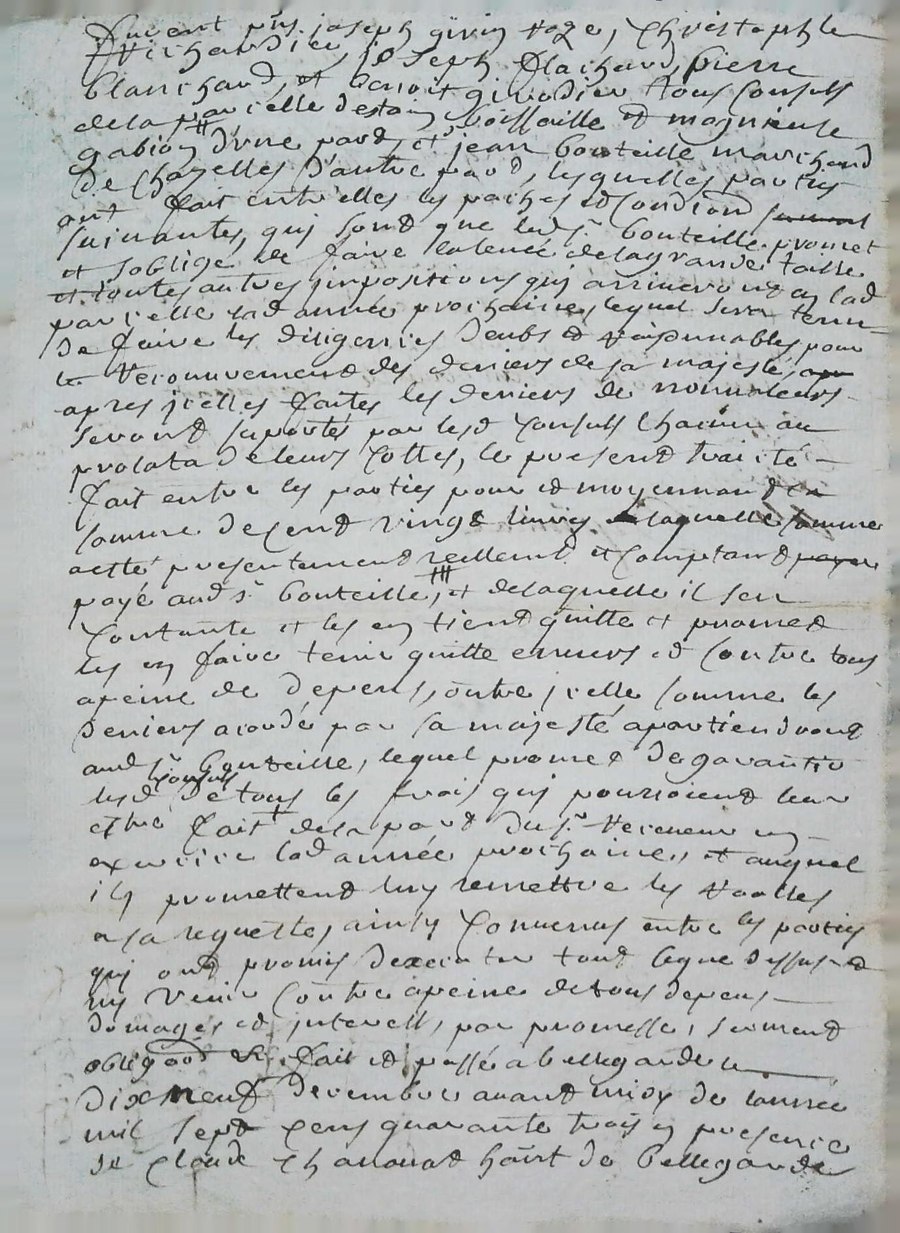 furent p̃nts joseph girin Roze, Christophle
Richardier, joseph flachard, pierre
blanchard, et benoit girodier tous consuls
de la parcelle destaing boissaille et magnieule
gabion d'une part, et sr jean bouteille marchand
de Chazelles d'autre part, lesquelles parties
ont fait entr'elles les paches et condions
suivantes, qui sont que led sr bouteille promet
et soblige de faire la levée de la grande taille
et toutes autres jmpositions qui arriveront en lad
parcelle lad année prochaine, lequel sera tenu
de faire les diligences deubs et raisonnables pour
le recouvrement des deniers de sa majesté,
apres jcelles faites les deniers de nonvaleurs
seront suportés par lesd consuls chacun au
prolata de leurs cottes, le present traité
fait entre les parties pour et moyennant la
somme de cent vingt livres laquelle somme
a esté presentement reellement et comptant
payé aud sr bouteille, et de laquelle il sen
contante et les en tient quitte et promet
les en faire tenir quitte envers et contre tous
a peine de depens, outre jcelle somme les
deniers acordé par sa majesté apartiendront
aud sr bouteille, lequel promet de garantir
lesd consuls de tous les frais qui pourroient leur
estre fait de la part du sr Receveur en
exercice lad année prochaine, et auquel
ils promettent luy remettre les Roolles
a sa requeste, ainsy convenus entre les parties
qui ont promis dexecuter tout ceque dessus et
ny venir contre a peine de tous depens
domages et jnterests, par promesse, serment
obligaõn &c fait et passé a bellegarde le
dix neuf decembre avant midy de lannée
mil sept cens quarante trois en presence
de claude Chanavat hãnt de bellegarde